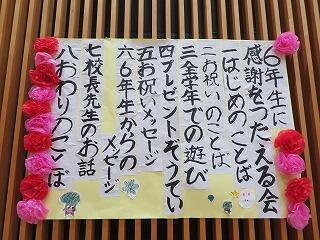 ６年生に
感謝をつたえる会
一はじめのことば
二お祝いのことば
三全学年での遊び
四プレゼントぞうてい
五お祝いメッセージ
六６年生からの
メッセージ
七校長先生のお話
八おわりのことば